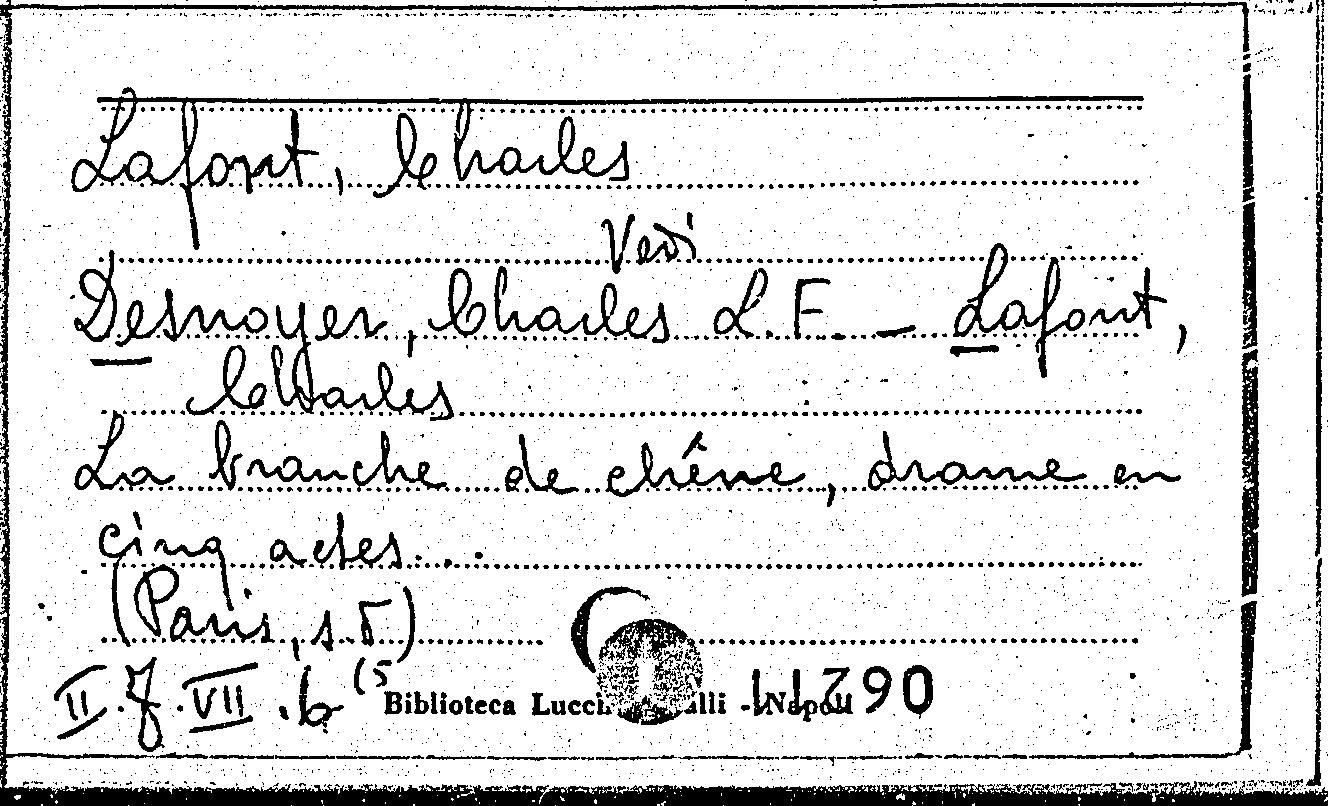 Lafont, Charles
Vedi
Desnoyer, Charles L. F. – Lafont,
Charles
La branche de chêne, drame en
cinq actes...
(Paris, s. d)
II. J. VII. b (5
Biblioteca Lucchesi Palli - Napoli 11790